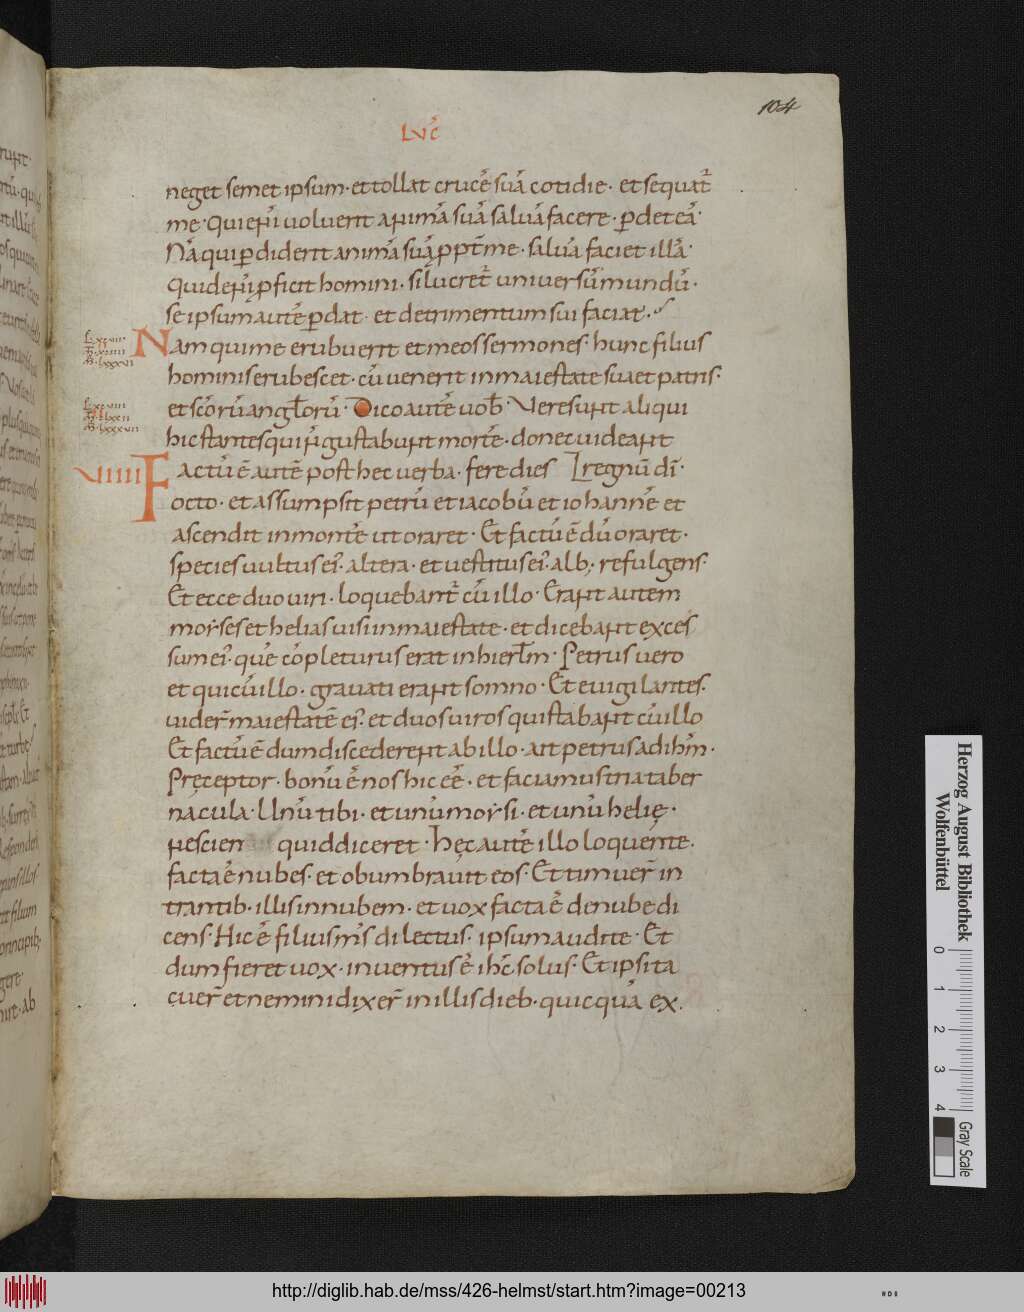 104
LVC̄
neget semet ipsum · et tollat crucē suā cotidie · et sequat̄
me · Qui enī voluerit animā suā saluā facere · ꝑdet eā ·
Nā qui ꝑdiderit animā suā ꝓpt̄ me · saluā faciet illā ·
Quid enī ꝓficit homini · si lucret̄ universū mundū ·
se ipsum autē ꝑdat · et detrimentum sui faciat ·
Nam qui me erubuerit et meos sermones · hunc filius
hominis erubescet · cū venerit in maiestate sua et patris ·
et scōrū anglorū · Dico autē vob̄ · Vere sunt aliqui
hic stantes qui ñ gustabunt mortē · donec videant
VIIII
Factū ē autē post hec verba · fere dies regnū dī ·
octo · et assumpsit petrū et iacobū et iohannē et
ascendit in montē ut oraret · Et factū ē dū oraret ·
species vultus ei᾽ altera · et vestitus ei᾽ alb; refulgens ·
Et ecce duo viri · loquebant̄ cū illo · Erant autem
moyses et helias visi in maiestate · et dicebant exces
sum ei᾽ · quē cōpleturus erat in hierl̄m · Petrus vero
et qui cū illo · gravati erant somno · Et evigilantes ·
vider̄ maiestatē ei᾽ · et duos viros qui stabant cū illo
Et factū ē dum discederent ab illo · ait petrus ad ihm̄ ·
Pręceptor · bonū ē nos hic eē · et faciamus tria taber
nacula · Unū tibi · et unū moysi · et unū helię ·
nescien quid diceret · hęc autē illo loquente ·
facta ē nubes · et obumbravit eos · Et timuer̄ in
trantib · illis in nubem · et vox facta ē de nube di
cens · Hic ē filius ms̄ dilectus · ipsum audite · Et
dum fieret vox · inventus ē ihc̄ solus · Et ipsi ta
cuer̄ et nemini dixer̄ in illis dieb · quicquā ex
Herzog August Bibliothek
Wolfenbüttel
0 1 2 3 4
Gray Scale
http://diglib.hab.de/mss/426-helmst/start.htm?image=00213